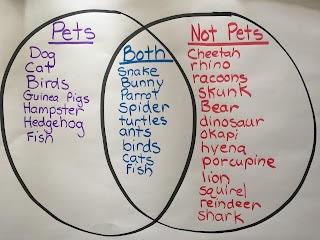 Pets
Dog
Cat
Birds
Guinea Pigs
Hamster
Hedgehog
Fish
Both
Snake
Bunny
Parrot
Spider
turtles
ants
birds
cats
Fish
Not Pets
Cheetah
rhino
racoons
skunk
Bear
dinosaur
okapi
hyena
porcupine
lion
squirel
reindeer
shark